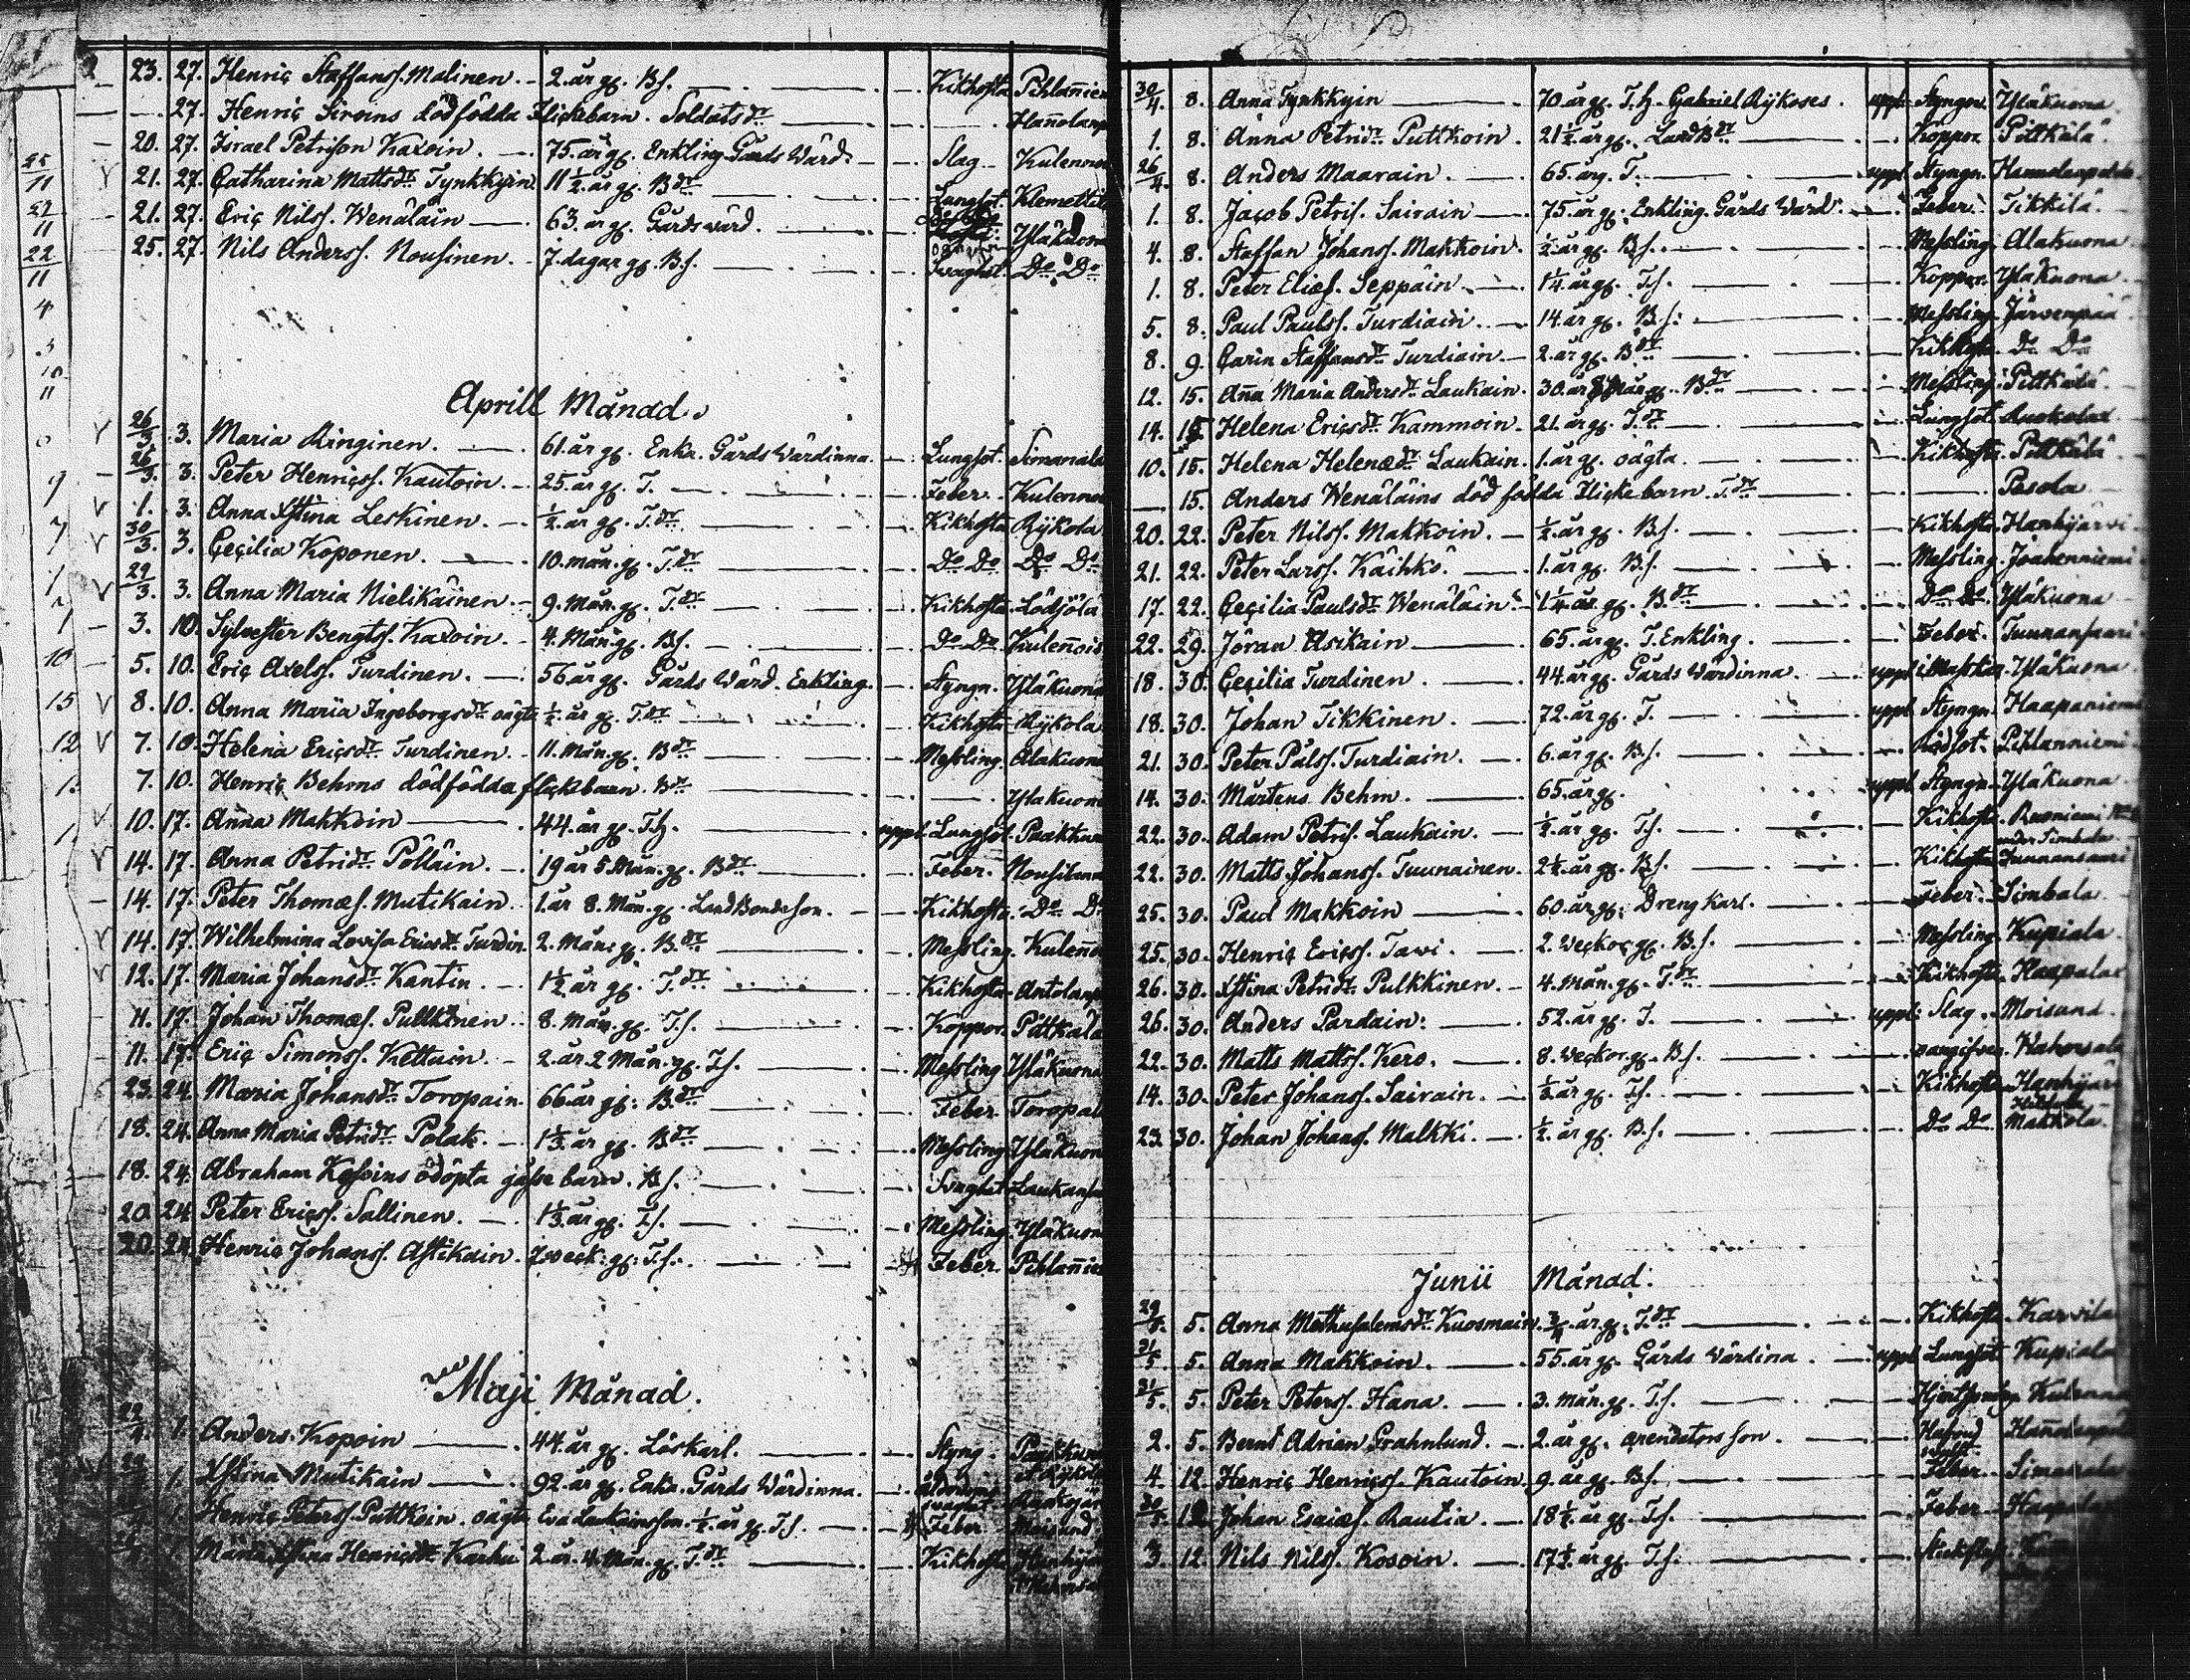 23. 27. Henric Staffanss. Malinen. 2. år gl. Bs. Kikhosta Pihlaniem
27. Henric Siroins dödfödda Flickebarn. Soldatsdr
20. 27. Israel Petrison Kaxoin. 75. år gl. Enkling Gårds Wärd. Slag Kulennoi
21. 27. Catharina Mattsdr Tynkkyin 11 1/2. år gl. Bdr Lungsot. Klemettilä
21. 27. Eric Nilss. Wenäläin 63. år gl. Gårdswärd. Yläkuona
25. 27. Nils Anderss. Nousinen. 7. dagar gl. Bs. Swaghet. Do Do
Aprill Månad.
26/3 3. Maria Ringinen. 61. år gl. Enka. Gårds Wärdinna. Lungsot. Simanala
26/3. 3. Peter Henricss. Kautoin. 25. år gl. T. Feber. Kulenno
1. 3. Anna Xstina Leskinen. 1/2. år gl. T.dr Kikhosta Rykola
30/3. 3. Cecilia Koponen. 10. mån. gl. T.dr Do Do Do Do
29/3. 3. Anna Maria Nielikäinen. 9. Mån. gl. T.dr Kikhosta Lödjölä
3. 10. Sylvester Bengtss. Kaxoin. 4. Mån. gl. Bs. Do Do Kulennois
5. 10. Eric Axelss. Turdinen. 56 år gl. Gårds Wärd. Enkling. Styngn. Yläkuona
8. 10. Anna Maria Ingeborgsdr oägta 1/2. år gl. T.dr Kikhosta Rykola
7. 10. Helena Ericsdr Turdinen. 11. Mån. gl. Bdr Messling. Alakuona
7. 10. Henric Behms dödfödda flickbarn. Bdr Yläkuona
10. 17. Anna Makkoin 44. år gl. T.h. uppl. Lungsot. Paakkuna
14. 17. Anna Petridr Pölläin. 19 år 5. Mån. gl. Bdr Feber. Nousiluna
14. 17. Peter Thomæs. Mutikain. 1. år 8. Mån. gl. Land Bondeson. Kikhosta. Do Do
14. 17. Wilhelmina Lovisa Ericsdr Turdin. 2. Mån. gl. Bdr Messling. Kulenno
12. 17. Maria Johansdr Kantin. 1 1/2 år gl. T.dr Kikhosta Antolanp
11. 17. Johan Thomæs. Pulkkinen. 8. Mån. gl. T.s. Koppor. Pittkälä
11. 17. Eric Simonss. Kettuin. 2. år 2 Mån. gl. Ts. Messling Yläkuona
23. 24. Maria Johansdr Toropain. 66. år gl. Bdr Feber Toropal
18. 24. Anna Maria Petridr Polak. 1 1/3. år gl. Bdr Messling Yläkuon
18. 24. Abraham Kessoins odöpta gåsse barn. Bs. Swaghet Laukansa
20. 24 Peter Ericss. Sallinen. 1 1/3. år gl. Ts. Messling. Yläkuon
20. 24. Henric Johanss. Astikain. 7. week. gl. T.s. Feber Pihlanie
Maji Månad.
1. Anders Kopoin 44. år gl. Löskarl. Styng. Paakkuna
1. Xstina Mutikain 92. år gl. Enka. Gårds Wärdinna.
1. Henric Peterss. Puttkoin. oägta Eva Laukainsson. 1/2. år gl. Ts. Feber Moisand
Maria Xstina Henricsdr Karhu 2. år. 4. Mån. gl. T.dr Kikhosta
30/4. 8. Anna Tynkkyin 70. år gl. T.h. Gabriel Rykoses. uppl. Styngn. Yläkuona
1. 8. Anna Petridr Puttkoin. 21 1/2. år gl. Land Bdr Koppor. Pittkälä
26/4. 8. Anders Maarain. 65. år g. T. uppl. Styngn.
1. 8. Jacob Petris. Sairain 75. år gl. Enkling. Gårds Wärd. Feber. Tikkilä
4. 8. Staffan Johanss. Makkoin. 1/2. år gl. Bs. Messling. Alakuona
1. 8. Peter Eliæs. Seppäin. 1 1/4. år gl. Ts. Koppor. Yläkuona
5. 8. Paul Paulss. Turdiain. 14. år gl. Bs. Messling. Järvenpää
8. 9. Carin Staffansdr Turdiain. 2. år gl. Bdr Kikhosta. Do Do
12. 15. Anna Maria Andersdr Laukain. 30. år Mån. gl. Bdr Messling. Pittkälä
14. 15. Helena Ericsdr Kammoin. 21. år gl. T.dr Lungsot.
10. 15. Helena Helenædr Laukain. 1. år gl. oägta Kikhosta Pittkälä
15. Anders Wenäläins dödfödda Flickebarn. T.dr Pesola
20. 22. Peter Nilss. Makkoin. 1/2. år gl. Bs. Kikhosta. Hanhijärvi
21. 22. Peter Larss. Käihkö. 1. år gl. Bs. Messling. Joukenniemi
17. 22. Cecilia Paulsdr Wenäläin 1 1/4. år gl. Bdr Do Do Yläkuona
22. 29. Jöran Asikain 65. år gl. T. Enkling. Feber. Tuunansaari
18. 30. Cecilia Turdinen. 44. år gl. Gårds Wärdinna. uppl. Messling Yläkuona
18. 30. Johan Tikkinen. 72. år gl. T. uppl. Styngn. Haapaniemi
21. 30. Peter Pålss. Turdiain. 6. år gl. Bs. Rödsot. Pihlanniemi
14. 30. Mårtens Behm. 65. år gl. uppl. Styngn. Yläkuona
22. 30. Adam Petris. Laukain. 1/2. år gl. Ts. Kikhosta. under Simbala
22. 30. Matts Johanss. Tuunainen. 2 1/2. år gl. Bs. Kikhosta Tuunansaari
25. 30. Paul Makkoin 60. år gl. Dreng Karl. Feber. Simbala
25. 30. Henric Ericss. Tawi. 2. Weckor gl. Bs. Messling. Kupiala
26. 30. Xstina Petridr Pulkkinen. 4. Mån. gl. T.dr Kikhosta Haapalax
26. 30. Anders Pardain. 52. år gl. T. uppl. Slag. Moisand
22. 30. Matts Mattss. Kero. 8. Weckor gl. Bs.
14. 30. Peter Johanss. Sairain. 1/2. år gl. Ts. Kikhosta Hanhijärvi
23. 30. Johan Johanss. Malkki. 1/2. år gl. Bs. Do Do Makkola
Junii Månad.
29/5. 5. Anna Methusalemsdr Kuosmain. 3/4. år gl. T.dr Kikhosta. Karvila
31/5 5. Anna Makkoin. 55. år gl. Gårds Wärdina. uppl. Lungsot Kupiala
31/5. 5. Peter Peterss. Hana. 3. Mån. gl. T.s.
2. 5. Bernt Adrian Grahnlund. 2. år gl. arendators son.
4. 12. Henric Henricss. Kautoin. 9. år gl. Bs. Feber. Simanala
30/5. 12. Johan Esaiæs. Rautia. 18 1/2. år gl. T.s. Feber
3. 12. Nils Nilss. Kosoin. 17 1/2. år gl. T.s.